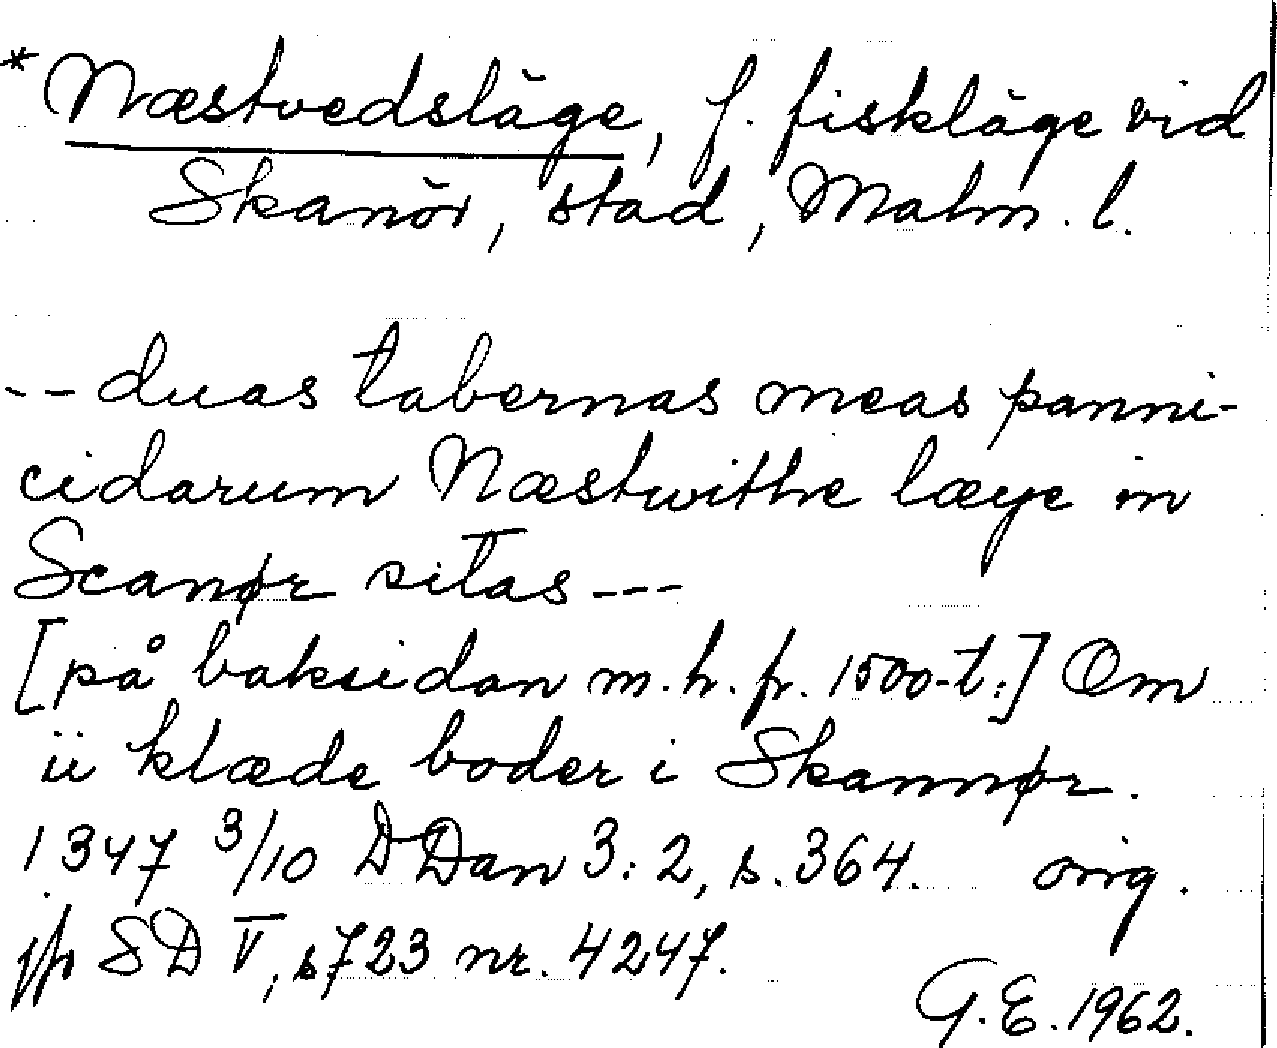 *Næstvedsläge, f. fiskläge vid
Skanör, stad, Malm. l.
-- duas tabernas meas panni-
cidarum Næstwithe læye in
Scanør sitas ---
[på baksidan m. h. fr. 1500-t.:] Om
ii klæde boder i Skannør.
1347 3/10 DDan 3:2, s. 364. orig.
jfr SD V, s 723 nr. 4247.
G.E. 1962.